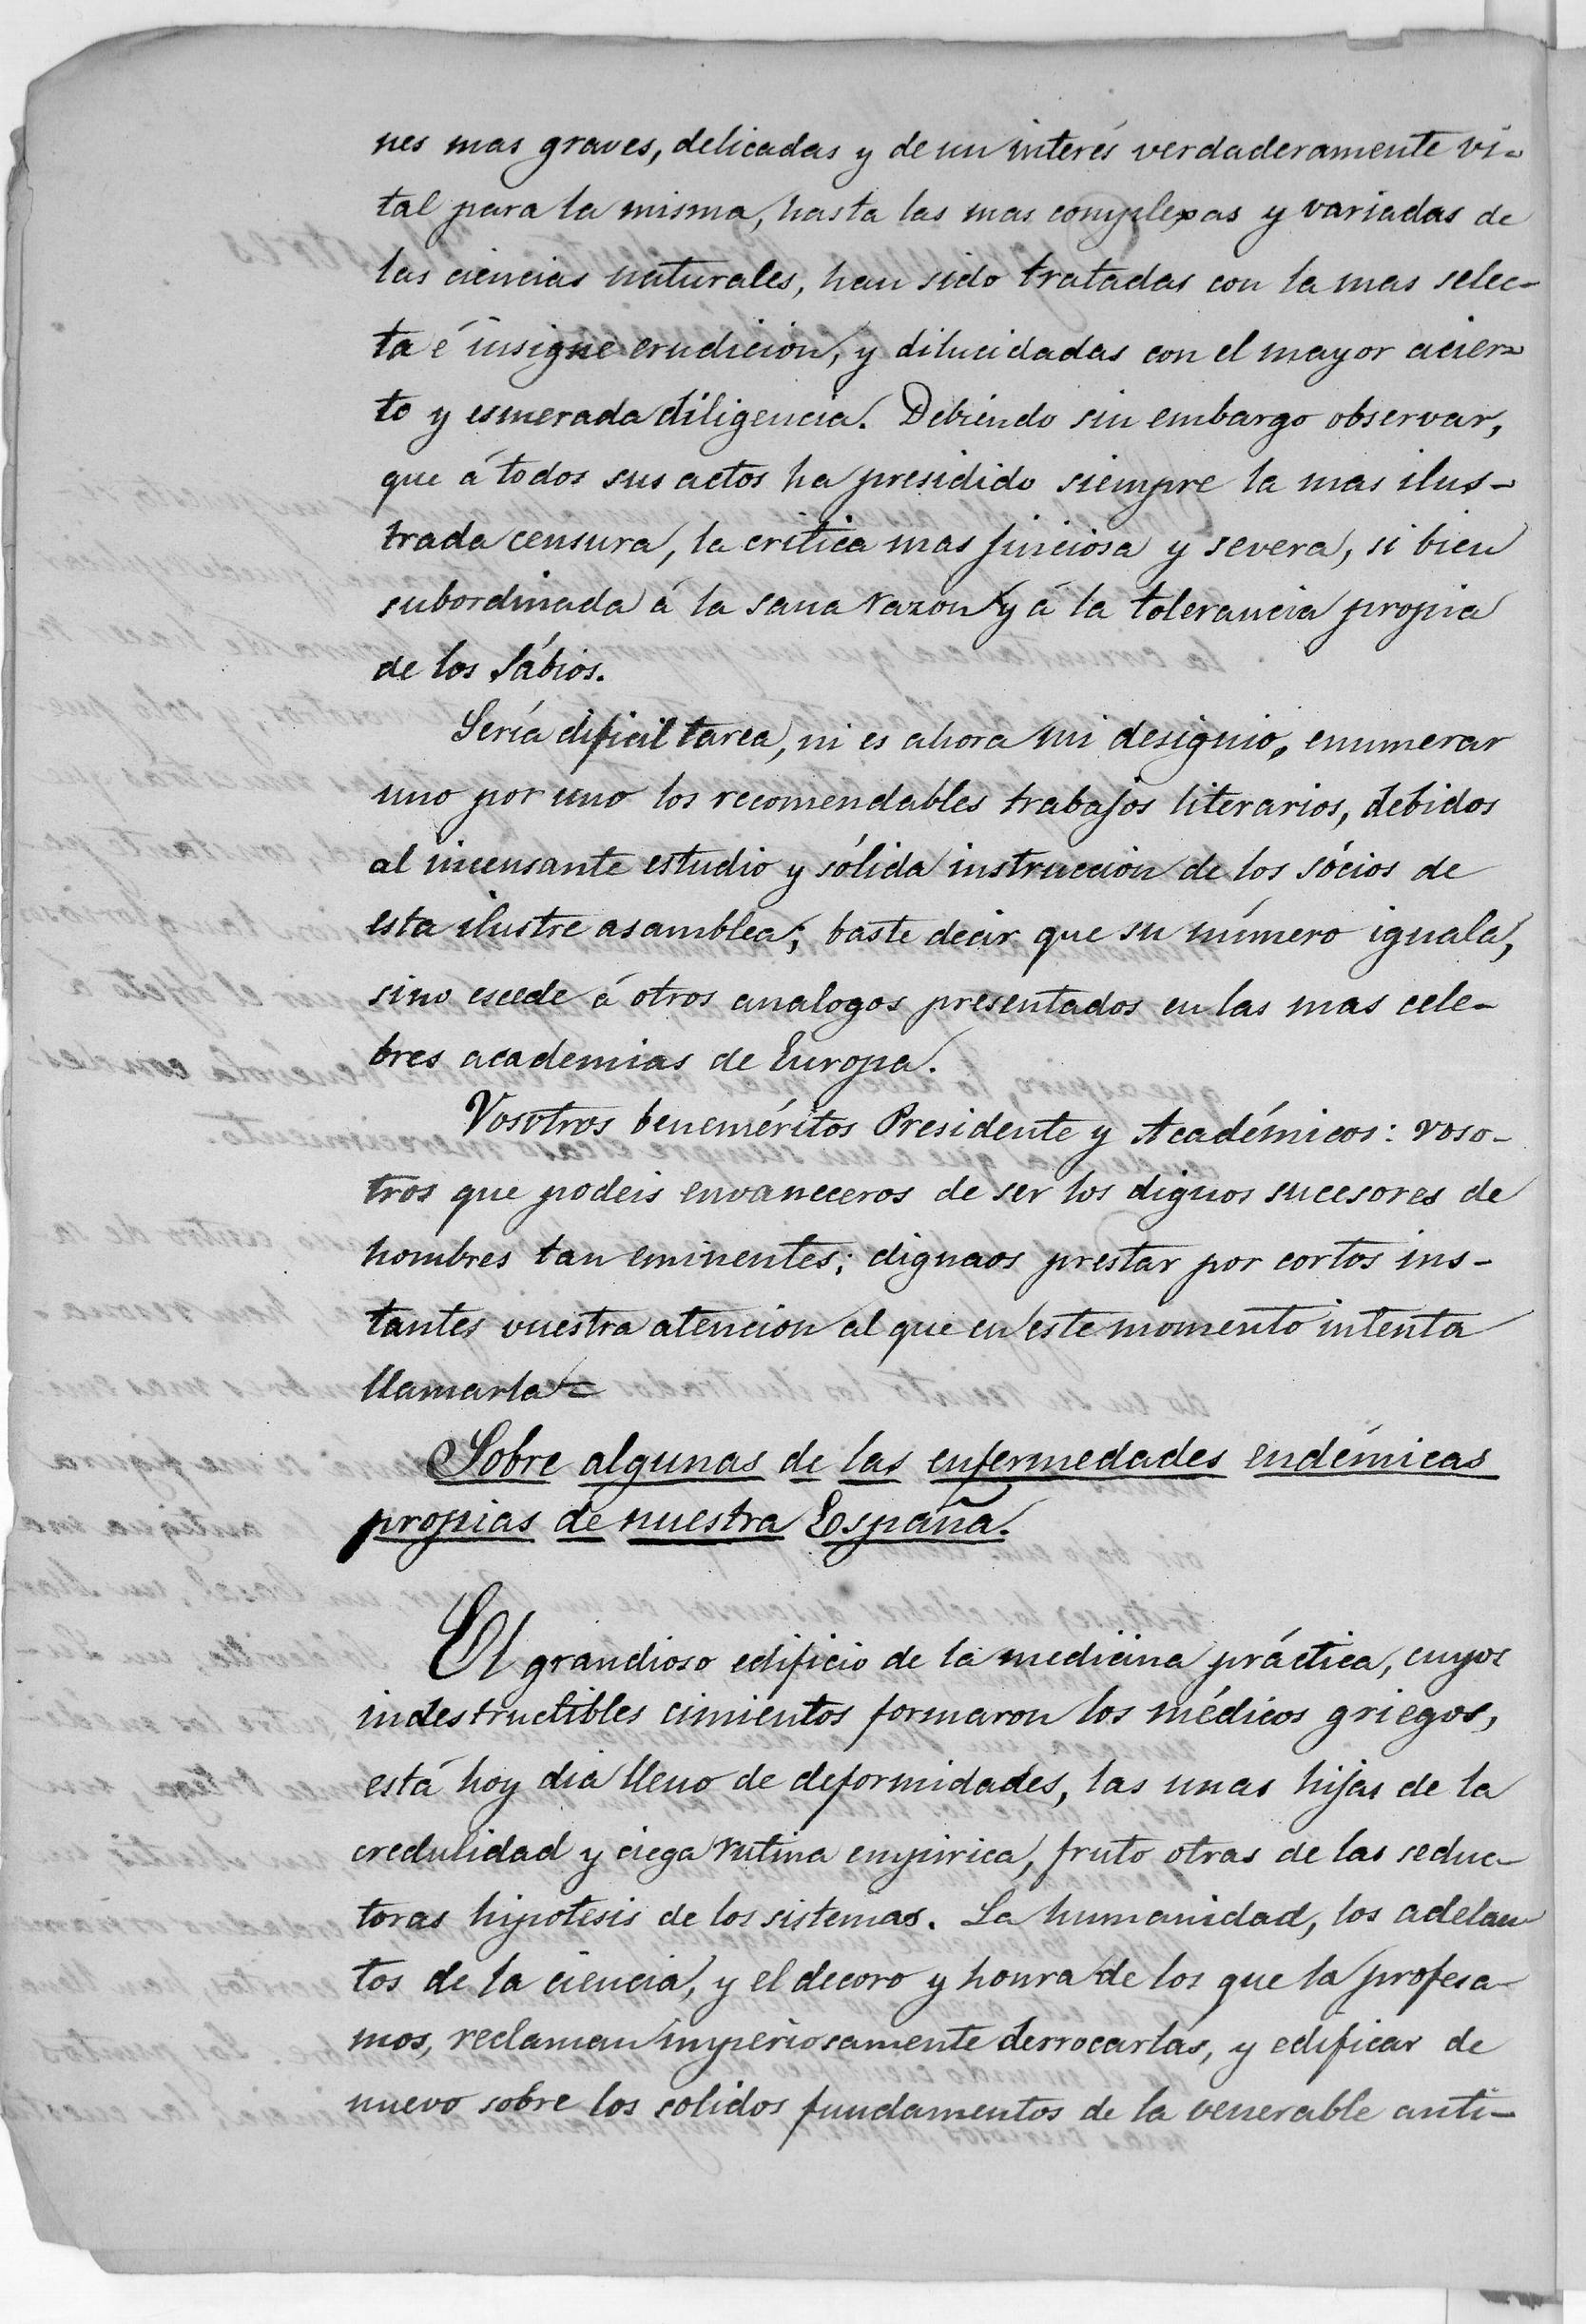 nes mas graves, delicadas y de un interés verdaderamente vi-
tal para la misma, hasta las mas complexas y variadas de
las ciencias naturales, han sido tratadas con la mas selec-
ta é insigne erudicion, y dilucidadas con el mayor acier-
to y esmerada diligencia. Debiendo sin embargo observar,
que á todos sus actos ha presidido siempre la mas ilus-
trada censura, la critica mas juiciosa y severa, si bien
subordinada á la sana razon y á la tolerancia propia
de los Sábios.
Sería dificil tarea, ni es ahora mi designio, enumerar
uno por uno los recomendables trabajos literarios, debidos
al incensante estudio y sólida instruccion de los sócios de
esta ilustre asamblea; baste decir que su número iguala,
sino escede á otros analogos presentados en las mas cele-
bres academias de Europa.
Vosotros beneméritos Presidente y Académicos: voso-
tros que podeis envaneceros de ser los dignos sucesores de
hombres tan eminentes; dignaos prestar por cortos ins-
tantes vuestra atencion al que en este momento intenta
llamarla=
Sobre algunas de las enfermedades endémicas
propias de nuestra España.
El grandioso edificio de la medicina práctica, cuyos
indestructibles cimientos formaron los médicos griegos,
está hoy dia lleno de deformidades, las unas hijas de la
credulidad y ciega rutina empirica, fruto otras de las seduc-
toras hipotesis de los sistemas. La humanidad, los adelan-
tos de la ciencia, y el decoro y honra de los que la profesa-
mos, reclaman imperiosamente derrocarlas, y edificar de
nuevo sobre los solidos fundamentos de la venerable anti-